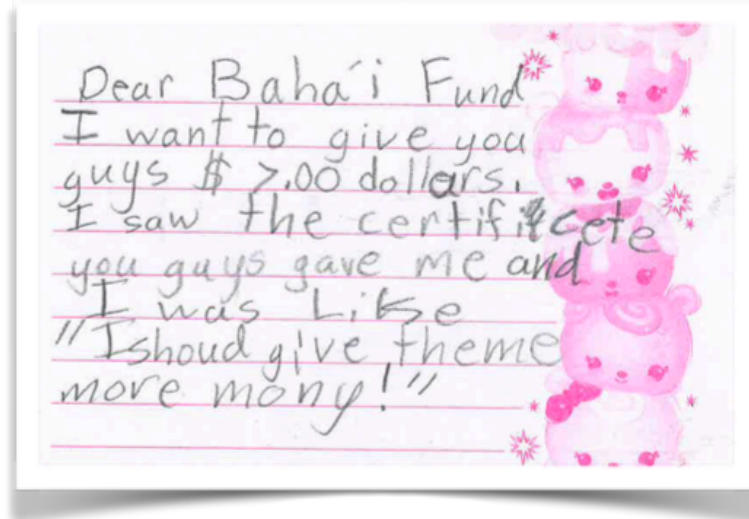 Dear Baha'i Fund
I want to give you
guys $ 7.00 dollars.
I saw the certificete
you guys gave me and
I was Like
"I shoud give theme
more mony!"